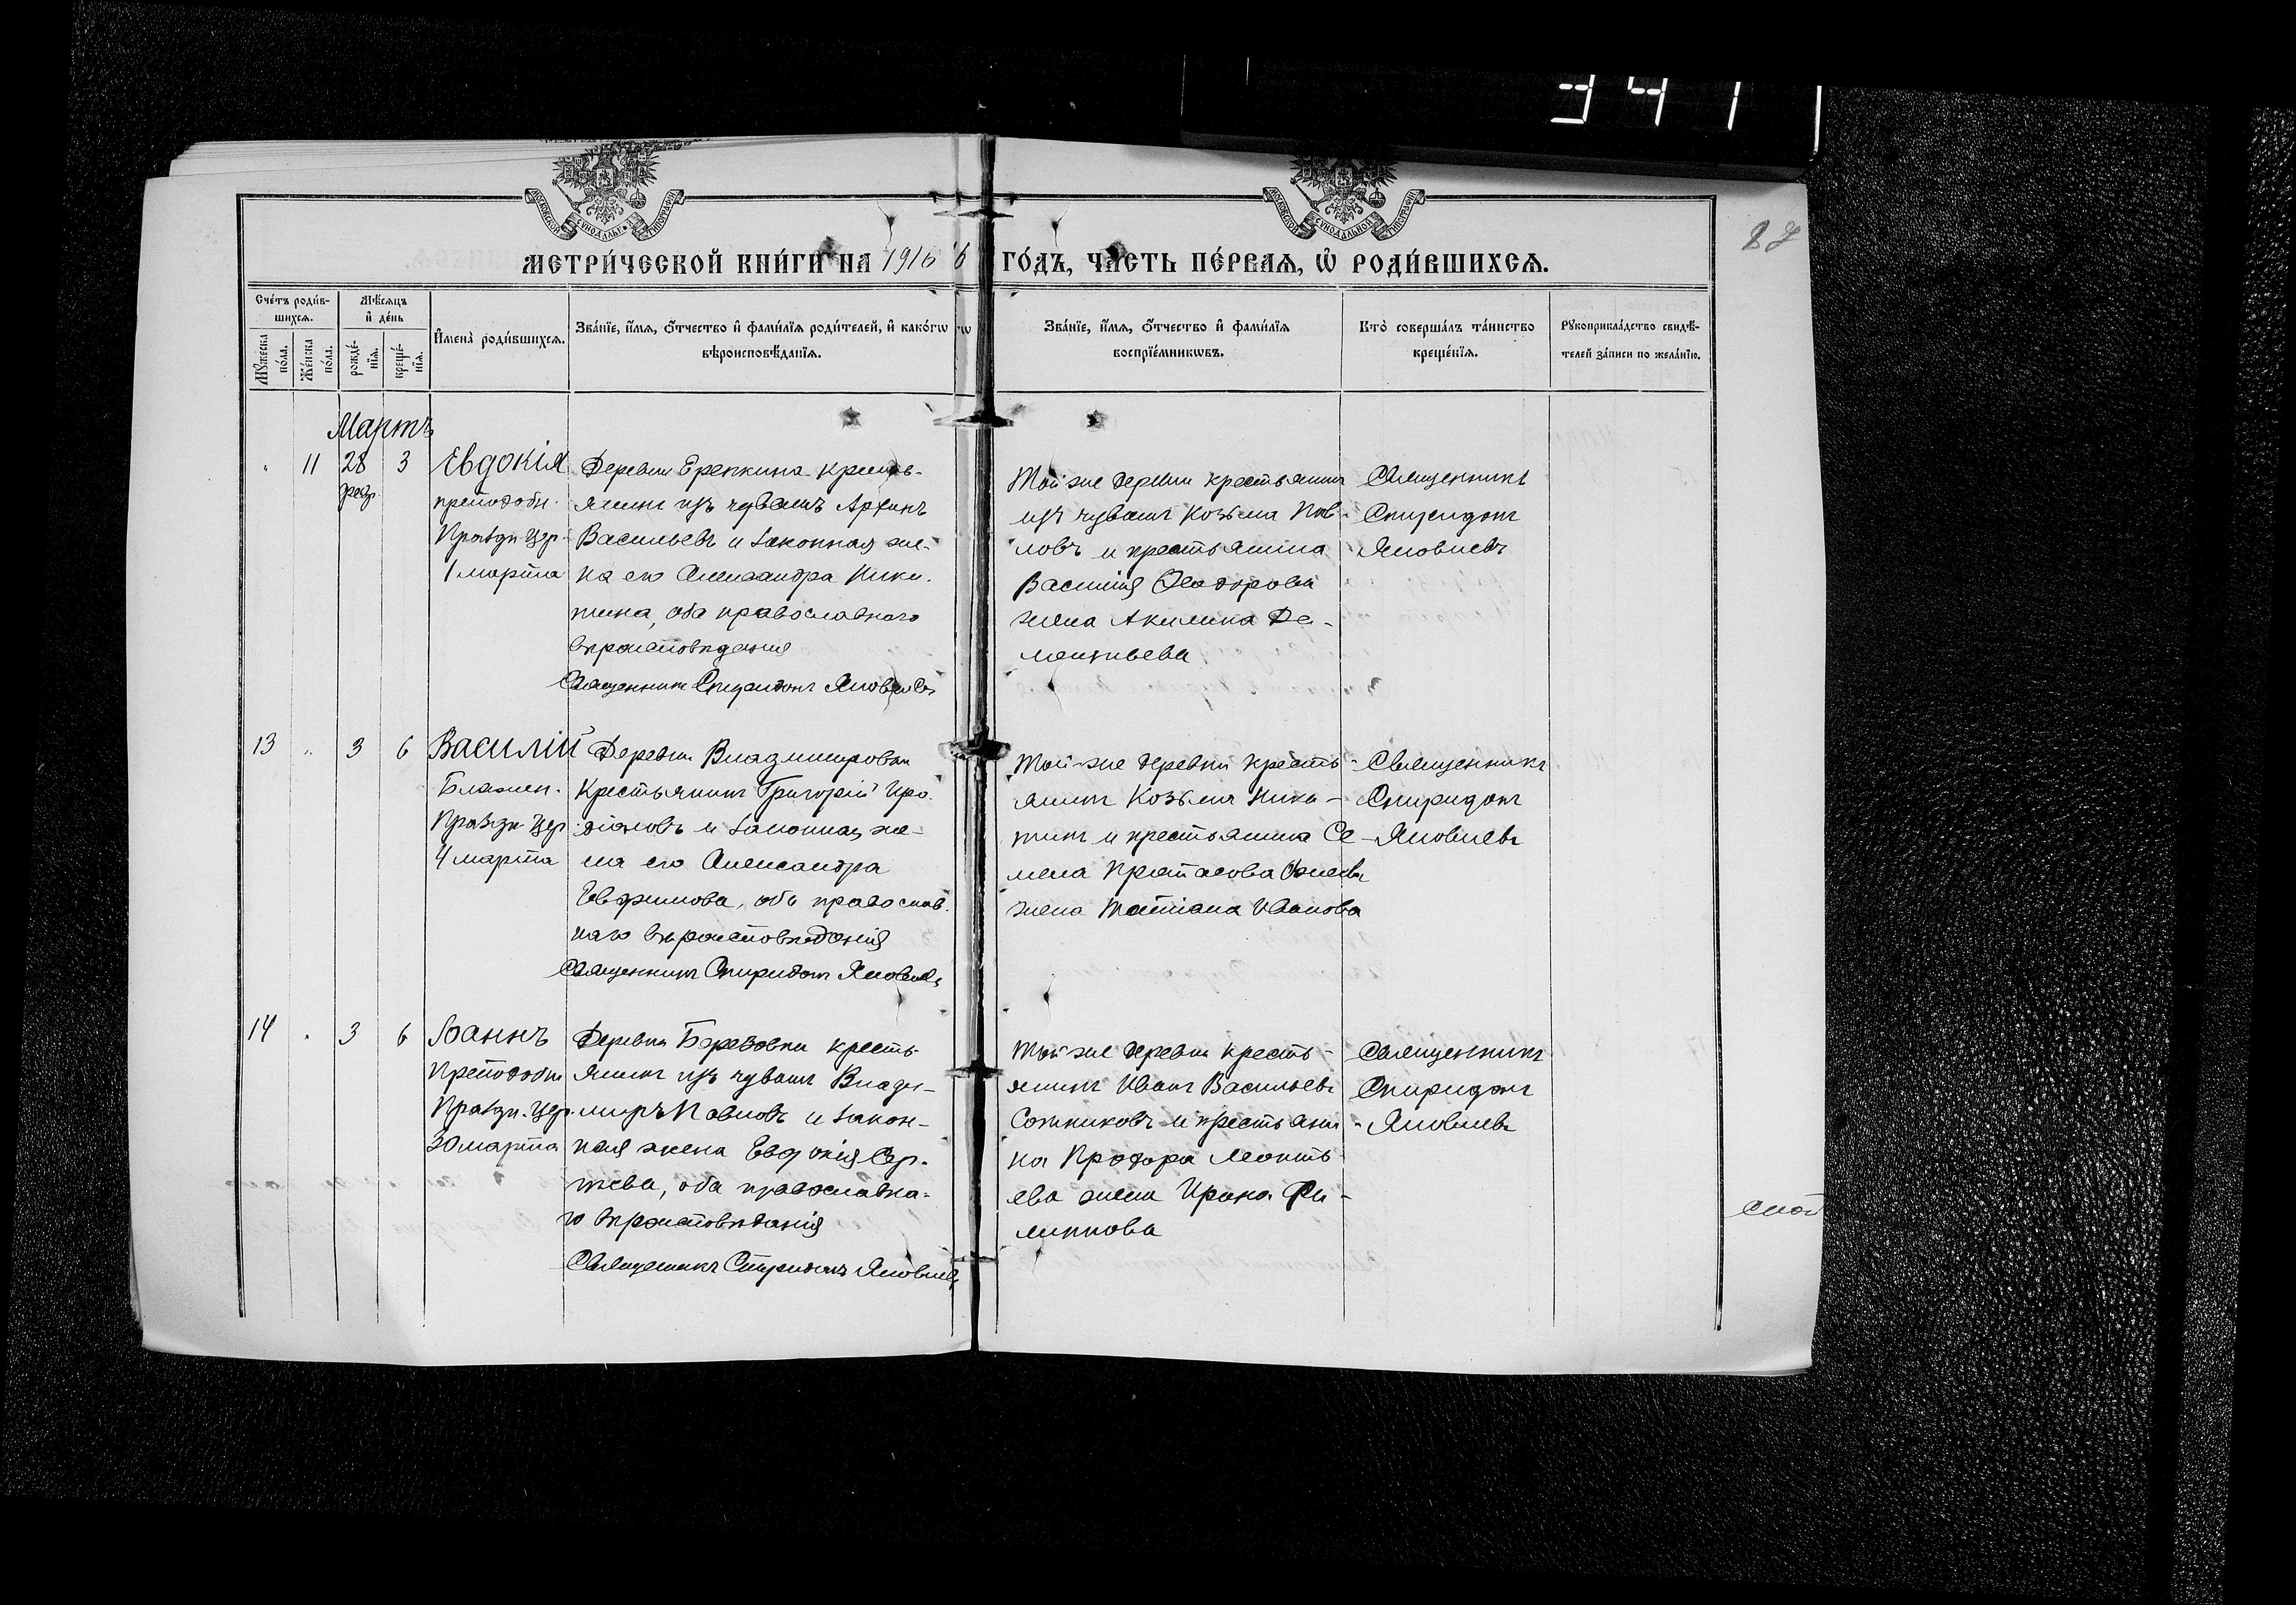 341
МОСКОВСКОЙ СѴНОДАЛЬНОЙ ТИПОГРАФІИ
МОСКОВСКОЙ СѴНОДАЛЬНОЙ ТИПОГРАФІИ
МЕТРИ́ЧЕСКОЙ КНИ́ГИ НА 1916 ГО́ДЪ, ЧА́СТЬ ПЕ́РВАѦ, Ѡ РОДИ́ВШИХСѦ.
Сче́тъ роди́в-
шихсѧ.
Мꙋ́жеска
по́ла.
Же́нска
по́ла.
Мѣ́сѧцъ
и де́нь
рожде́-
нїѧ.
креще́-
нїѧ.
Имена̀ роди́вшихсѧ.
Зва́нїе, и́мѧ, ѻ́тчество и фами́лїѧ роди́телей, и како́гѡ
вѣроисповѣ́данїѧ.
Зва́нїе, и́мѧ, ѻ́тчество и фами́лїѧ
воспрїе́мникѡвъ.
Кто̀ соверша́лъ та́инство
креще́нїѧ.
Рꙋкоприкла́дство свидѣ́-
телей за́писи по жела́нїю.
Мартъ
11 28 3
февр.
Евдокія
преподобн.
Праздн. цер.
1 марта
Деревни Ерепкина кресть-
янинъ изъ чувашъ Архипъ
Васильевъ и законная же-
на его Александра Ники-
тина, оба православнаго
вѣроисповѣданія
Священникъ Спиридонъ Яковлевъ
Той же деревни крестьянинъ
изъ чувашъ Козьма Пав-
ловъ и крестьянина
Василія Ѳеодорова
жена Акилина Де-
ментьева
Священникъ
Спиридонъ
Яковлевъ
13 " 3 6
Василій
Блажен.
Праздн. цер.
4 марта
Деревни Владимировки
Крестьянинъ Григорій Иро-
діоновъ и законная же-
на его Александра
Евфимова, оба православ-
наго вѣроисповѣданія
Священникъ Спиридонъ Яковлевъ
Той-же деревни кресть-
янинъ Козьма Ники-
тинъ и крестьянина Се-
мена Протасова
жена Татіана Иванова
Священникъ
Спиридонъ
Яковлевъ
14 " 3 6
Іоаннъ
Преподобн.
Праздн. цер.
30 марта
Деревни Березовки кресть-
янинъ изъ чувашъ Влади-
миръ Павловъ и закон-
ная жена Евдокія Сер-
геева, оба православна-
го вѣроисповѣданія
Священникъ Спиридонъ Яковлевъ
Той же деревни кресть-
янинъ Иванъ Васильевъ
Сотниковъ и крестьяни-
на Прохора Леонть-
ева жена Ирина Фи-
липпова
Священникъ
Спиридонъ
Яковлевъ